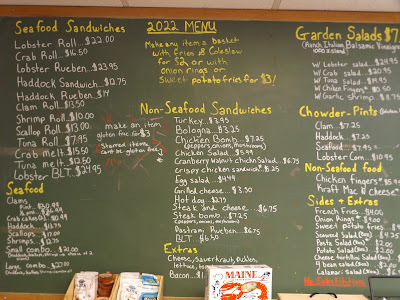 Seafood Sandwiches
Lobster Roll...$22.00
Crab Roll...$16.50
Lobster Rueben...$23.95
Haddock Sandwich...$12.75
Haddock Rueben...$14
Clam Roll...$13.50
Shrimp Roll...$10.00
Scallop Roll...$13.00
Tuna Roll...$7.95
Crab melt...$15.50
Tuna melt...$12.50
Lobster BLT...$24.95
Seafood
Clams
Crab cakes
Haddock...$13.75
Scallops...$17.00
Shrimp...$12.75
Small combo...$21.00
Large combo
2022 MENU
Make any item a basket
with fries & Coleslaw
for $2 or with
onion rings or
Sweet potato fries for $3!
make an item
gluten free for $3
Starred items
can't be gluten free
Non-Seafood Sandwiches
Turkey...$3.95
Bologna...$3.25
Chicken Bomb...$7.25
(peppers, onions, mushrooms)
Chicken Salad...$5.99
Cranberry walnut chickn Salad...$6.75
Crispy chicken sandwich...$.25
Egg salad...$4.49
Grilled cheese...$3.50
Hot dog...$2.79
Steak and cheese...$6.75
Steak bomb...$7.25
(peppers, onions, mushrooms)
Pastrami Rueben...$6.75
BLT...$6.50
Extras
Cheese, Sauerkraut, Pickles,
lettuce, tom
Bacon...$1
MAINE
Garden Salads $7
(Ranch Italian Balsamic Vinaigre
W/ Lobster salad...$24.95
W/ Crab salad...$20.95
W/ Tuna...$14.95
W/ Chiken Fingers
W/ Garlic shrimp...$18.75
Chowder-Pints
Clam...$7.25
Haddock...$7.25
Seafood...$7.95
Lobster Corn...$10.95
Non-Seafood Food
Chicken Fingers
Kraft Mac & Cheese
Sides + Extras
French Fries...$4.00
Onion Rings
Sweet potato fries
Seaweed Salad
Pasta Salad
Potato Salad
Cheese tortellini Salad
4 bean salad
Calamar Salad
No Substitution